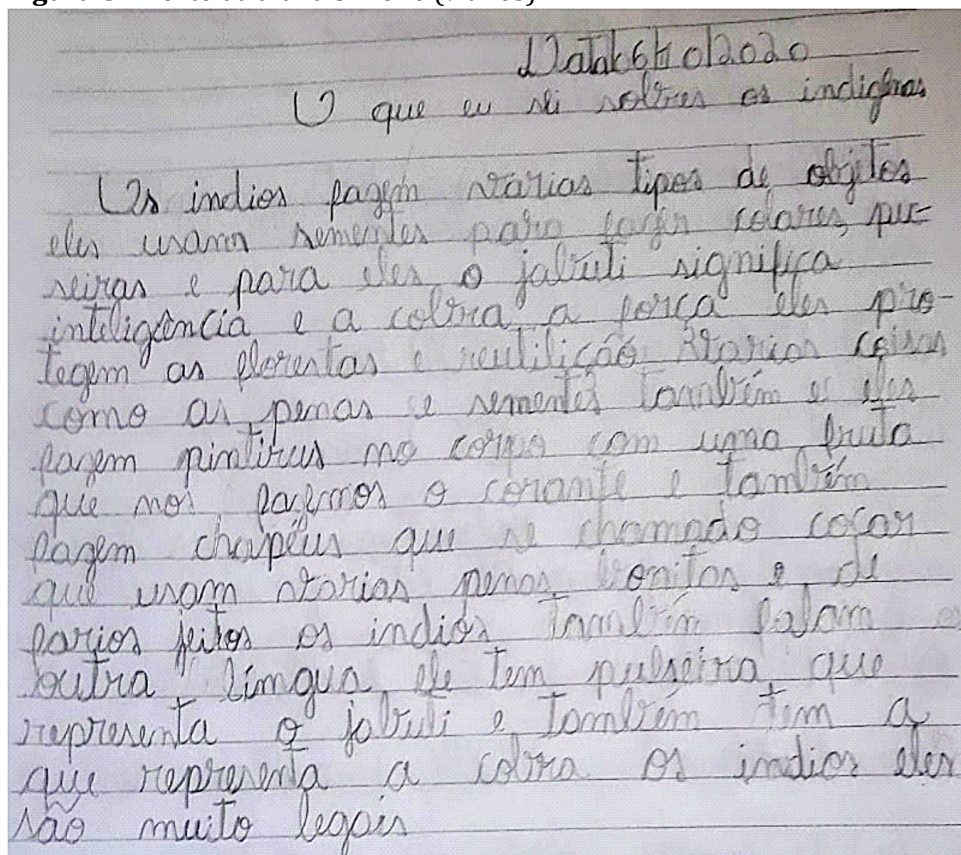 Data 6/10/2020
O que eu sei sobres os indigenas
Os indios fazem varias tipos de objetos
eles usam sementes para fazer colares, pul-
seiras e para eles o jabuti significa
inteligência e a cobra a força eles pro-
tegem as florestas e reutilição varias coisas
como as penas e sementes também e eles
fazem pinturas no corpo com uma fruta
que nos fazemos o corante e também
fazem chapéus que se chamado cocar
que usam varias penas bonitas e de
varios jeitos os indios também falam
outra língua, ele tem pulseira que
representa o jabuti e também tem a
que representa a cobra os indios eles
são muito legais